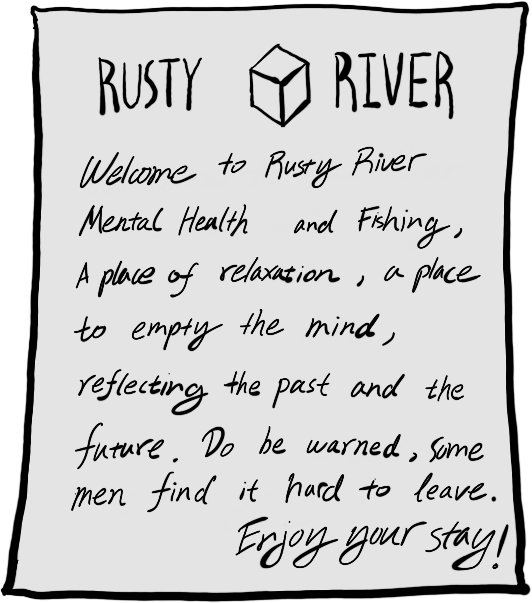 RUSTY RIVER
Welcome to Rusty River
Mental Health and Fishing,
A place of relaxation, a place
to empty the mind,
reflecting the past and the
future. Do be warned, some
men find it hard to leave.
Enjoy your stay!